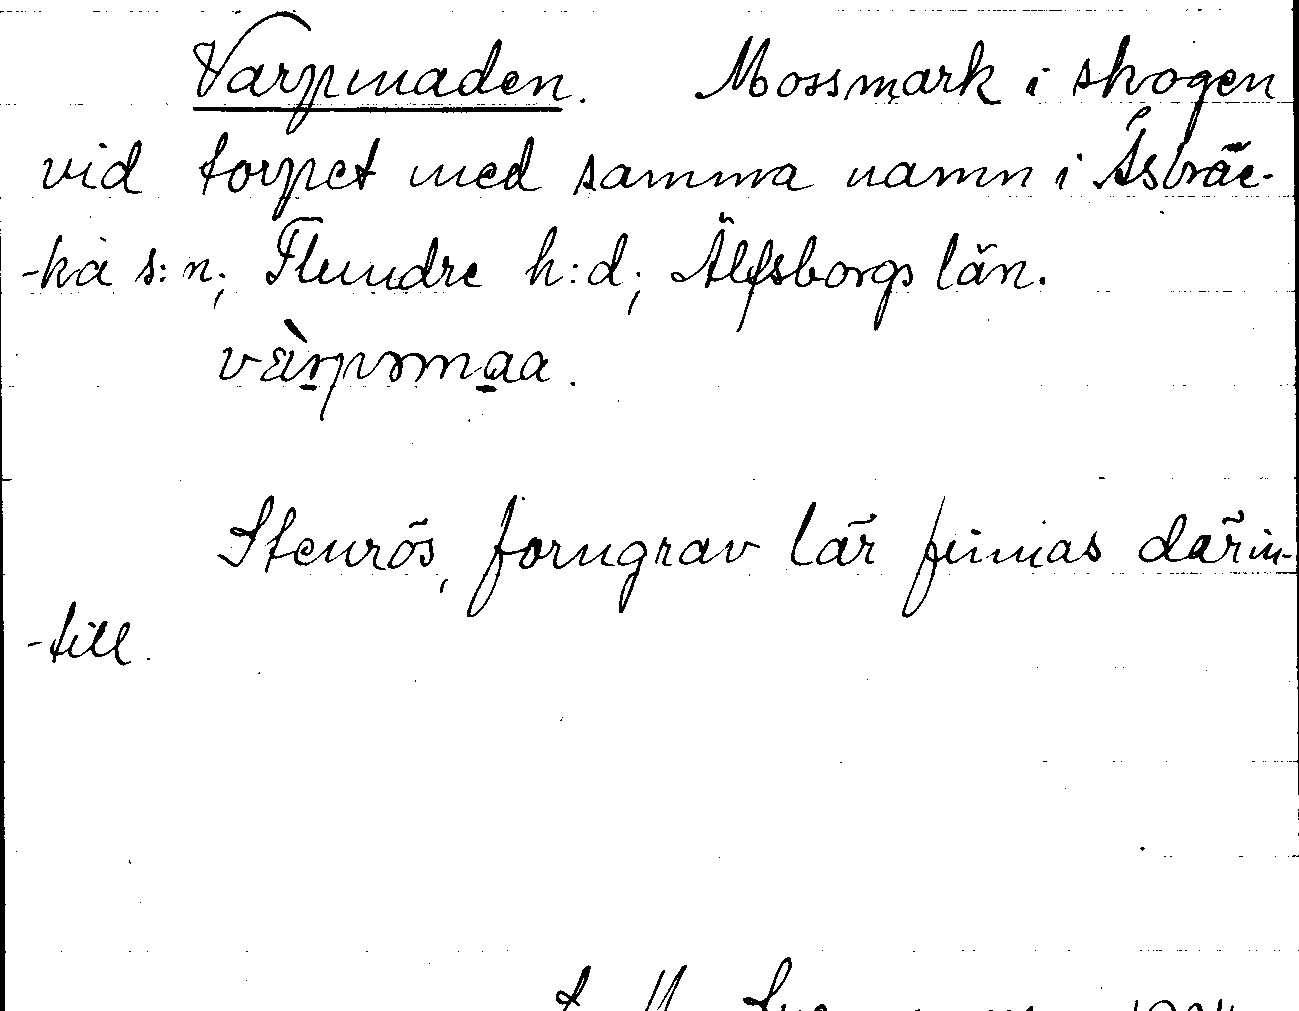 Varpmaden. Mossmark i skogen
vid torpet med samma namn i Åsbräc-
-ka s:n; Flundre h:d; Älfsborgs län.
värpəmaa.
Stenrös, forngrav lär finnas därin-
-till.